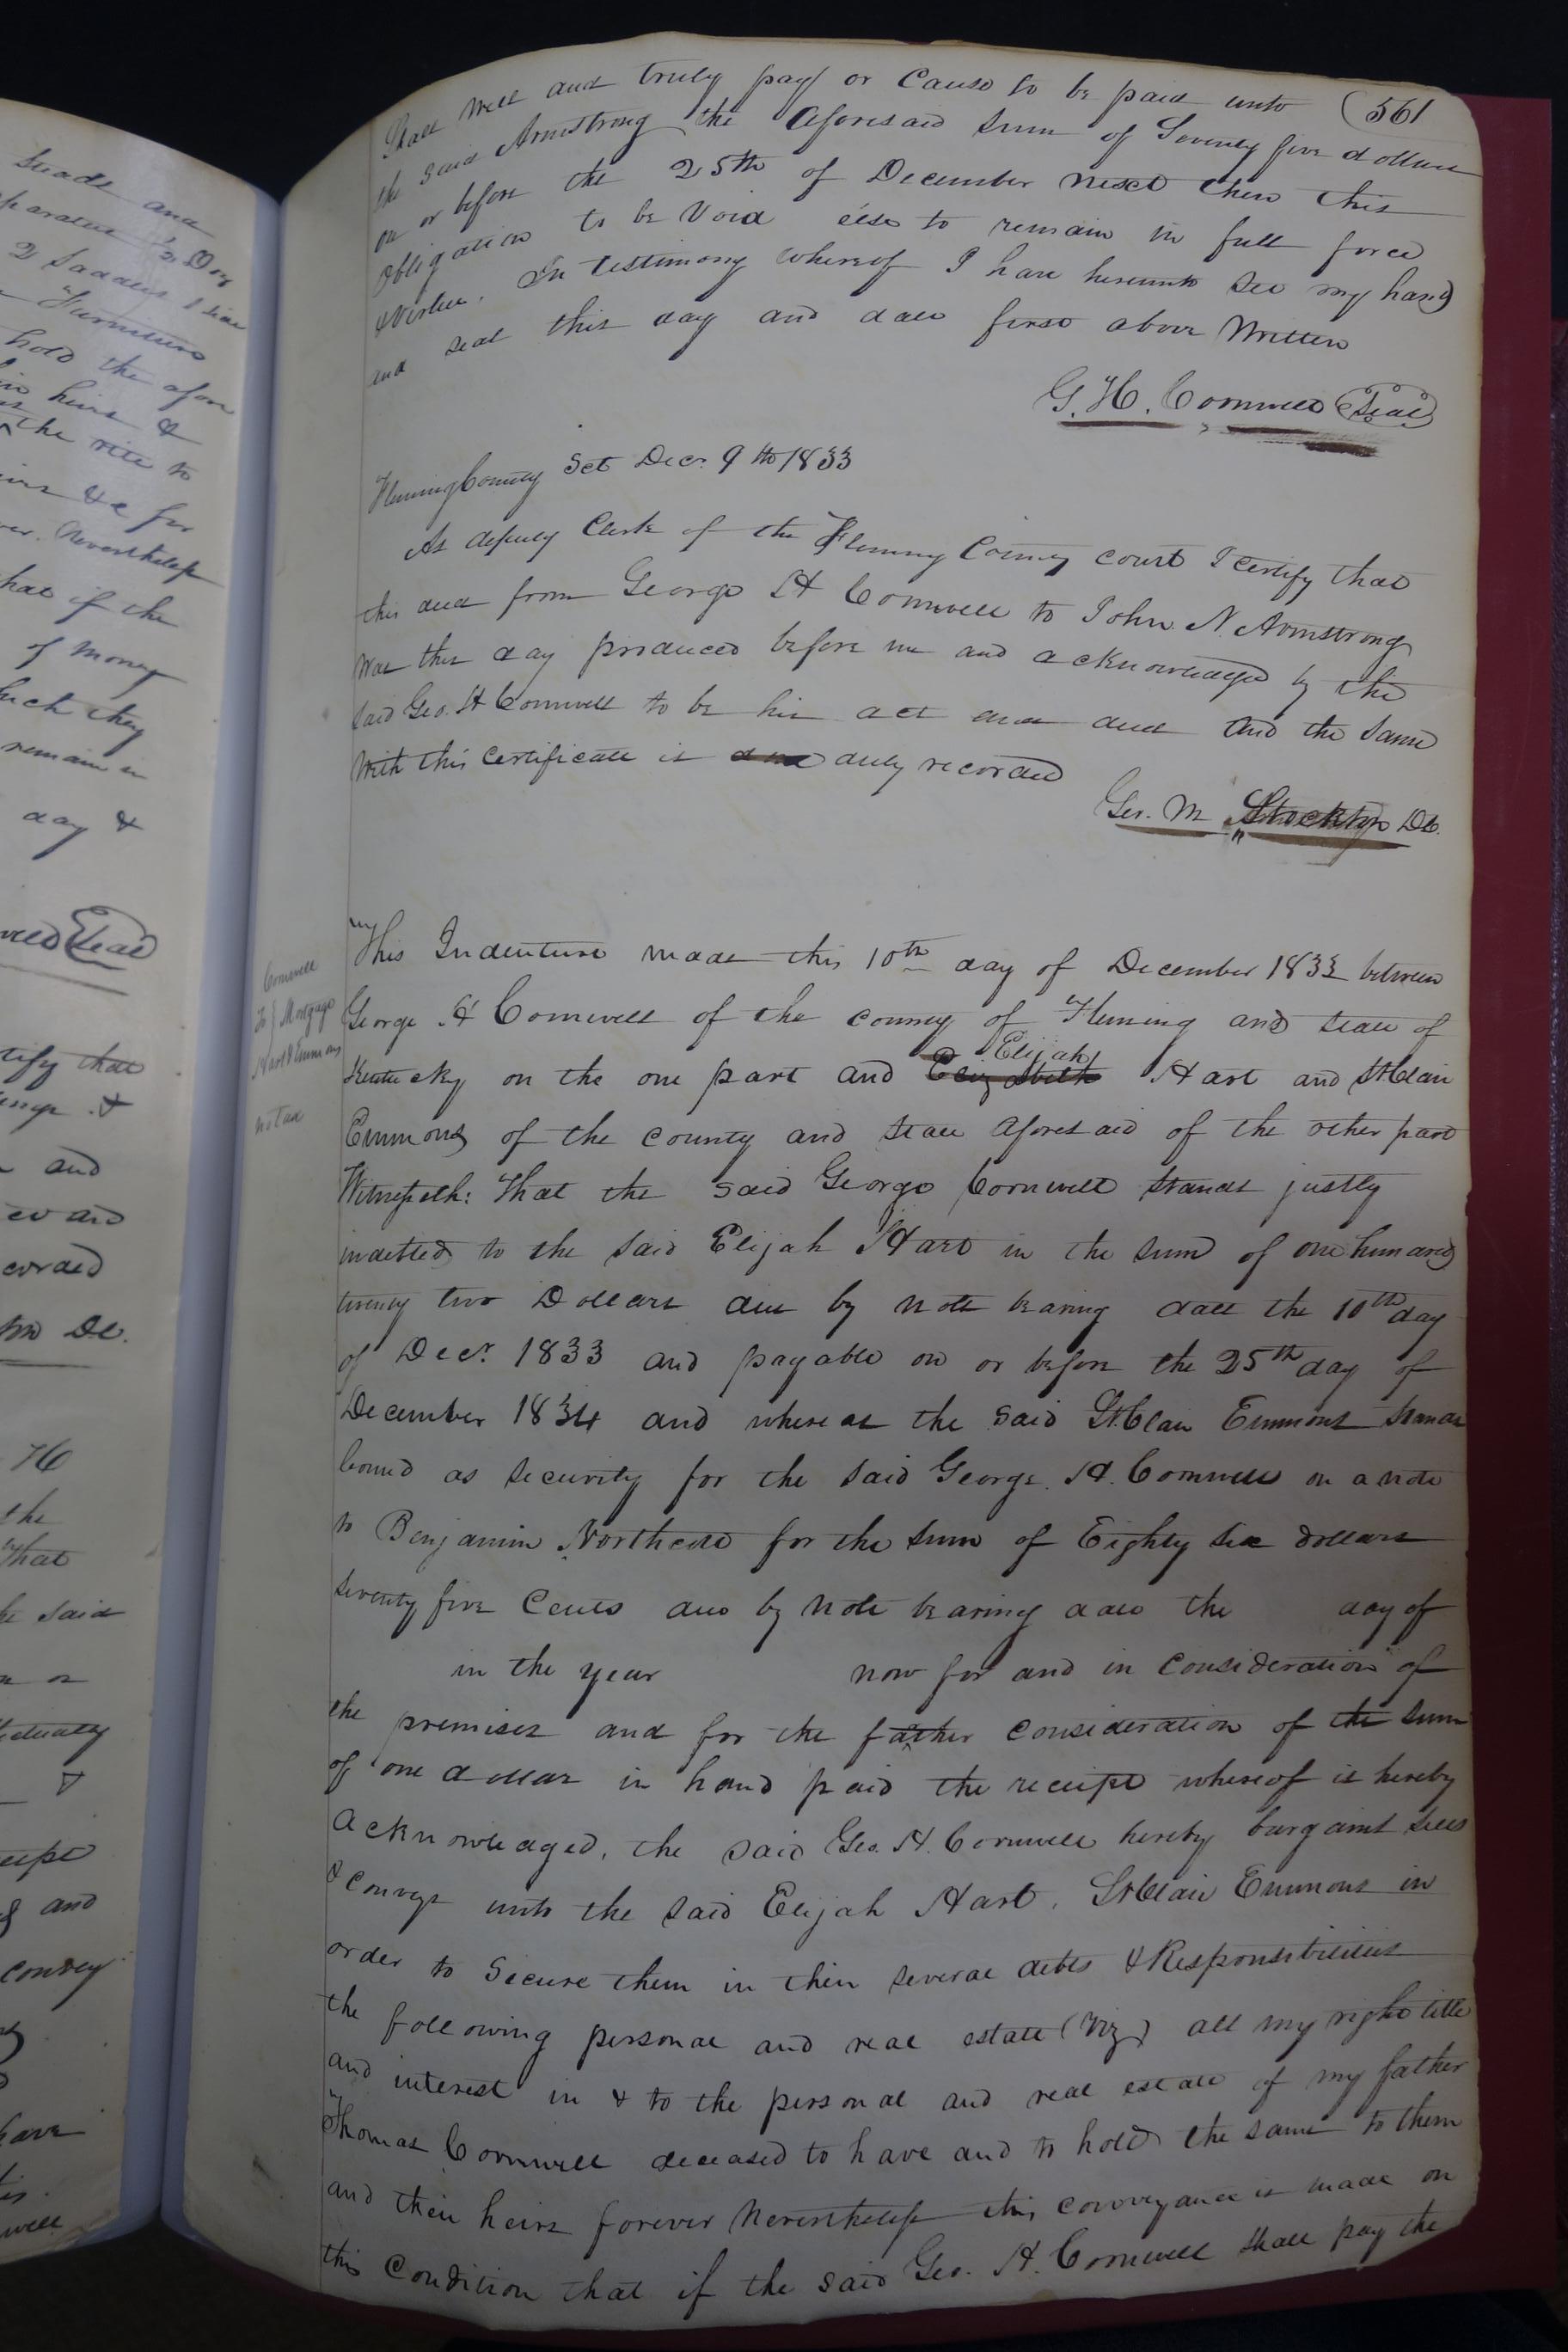 561
Shall Well and truly pay or Cause to be paid unto
the said Armstrong the Aforesaid Sum of Seventy five dollars
on or before the 25th of December next then this
obligation to be Void else to remain in full force
& Virtue. In testimony whereof I have hereunto set my hand
and seal this day and date first above Written
G. H. Cornwell Seal
Fleming County Sct Decr. 9th 1833
As deputy Clerk of the Fleming County court I certify that
this deed from George H Cornwell to John N. Armstrong
Was this day produced before me and acknowledged by the
said Geo. H Cornwell to be his act and deed and the same
With this certificate is duly recorded
Geo. M Stockton DC.
Cornwell
To } Mortgage
Hart & Emmons
no tax
This Indenture made this 10th day of December 1833 between
George H Cornwell of the county of Fleming and state of
Kentucky on the one part and Elijah Hart and StClair
Emmons of the county and state aforesaid of the other part
Witnesseth: That the said George Cornwell stands justly
indetted to the said Elijah Hart in the sum of one hundred
twenty two Dollars due by note bearing date the 10th day
of Decr. 1833 and payable on or before the 25th day of
December 1834 and where as the said StClair Emmons stands
bound as security for the said George H. Cornwell on a note
to Benjamin Northcutt for the sum of Eighty six dollars
seventy five Cents due by note bearing date the day of
in the year now for and in consideration of
the premises and for the father consideration of the sum
of one dollar in hand paid the receipt whereof is hereby
acknowledged, the said Geo. H. Cornwell hereby bargains sells
& conveys unto the said Elijah Hart, StClair Emmons in
order to secure them in their several debts & Responsibilities
the following personal and real estate (Viz) all my right title
and interest in & to the personal and real estate of my father
Thomas Cornwell deceased to have and to hold the same to them
and their heirs forever Nevertheless this conveyance is made on
this Condition that if the said Geo. H. Cornwell shall pay the